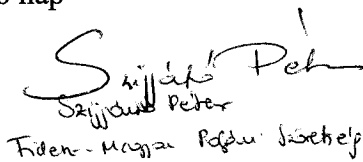 nap
Szijjártó Péter
Szijjártó Péter
Fidesz - Magyar Polgári Szövetség